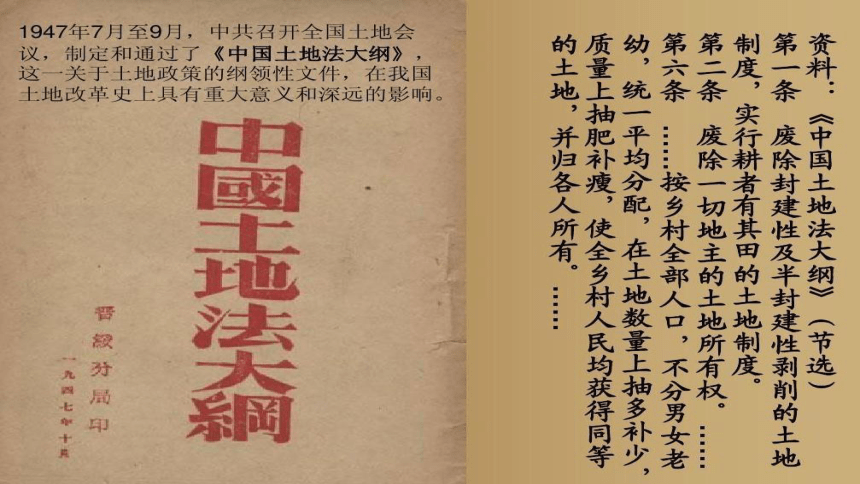 1947年7月至9月，中共召开全国土地会
议，制定和通过了《中国土地法大纲》，
这一关于土地政策的纲领性文件，在我国
土地改革史上具有重大意义和深远的影响。
中國土地法大綱
晋綏分局印
一九四七年十月
资料：《中国土地法大纲》（节选）
第一条　废除封建性及半封建性剥削的土地
制度，实行耕者有其田的土地制度。
第二条　废除一切地主的土地所有权。……
第六条　……按乡村全部人口，不分男女老
幼，统一平均分配，在土地数量上抽多补少，
质量上抽肥补瘦，使全乡村人民均获得同等
的土地，并归各人所有。……